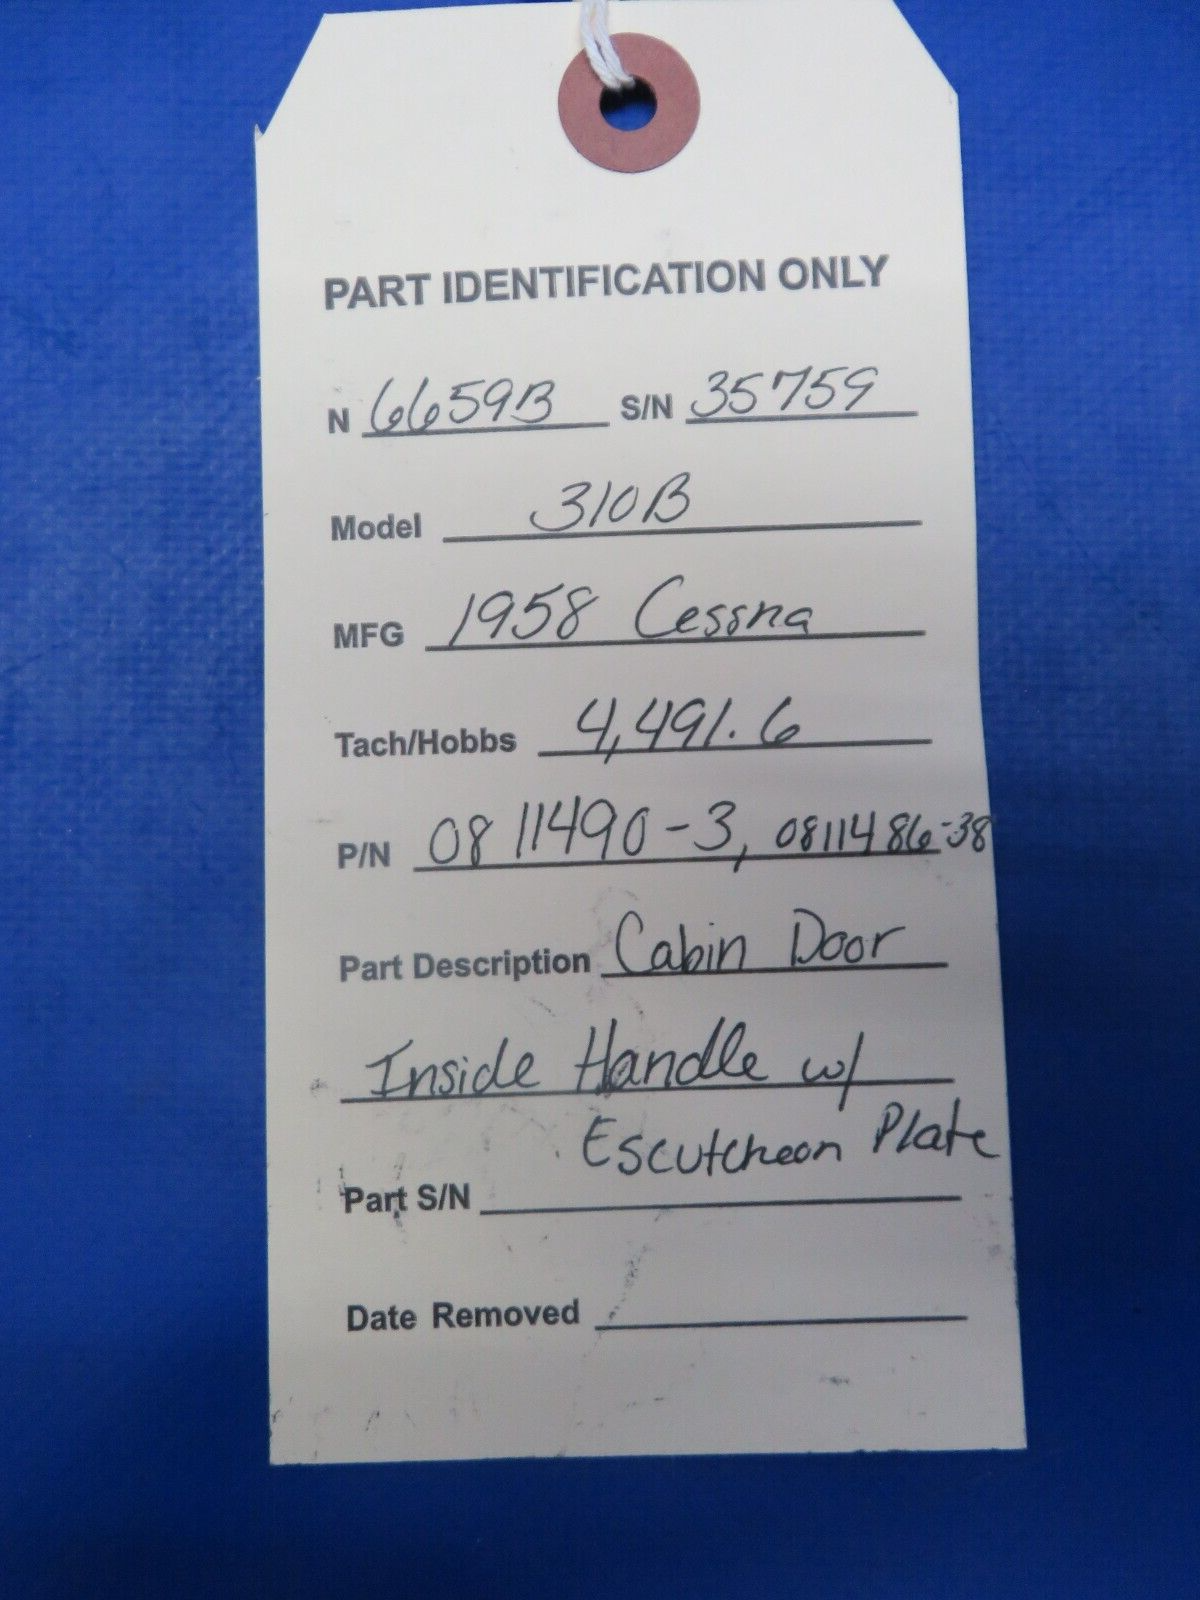 PART IDENTIFICATION ONLY
N 6659B S/N 35759
Model 310B
MFG 1958 Cessna
Tach/Hobbs 4,491.6
P/N 0811490-3, 0811486-38
Part Description Cabin Door
Inside Handle w/
Escutcheon Plate
Part S/N
Date Removed